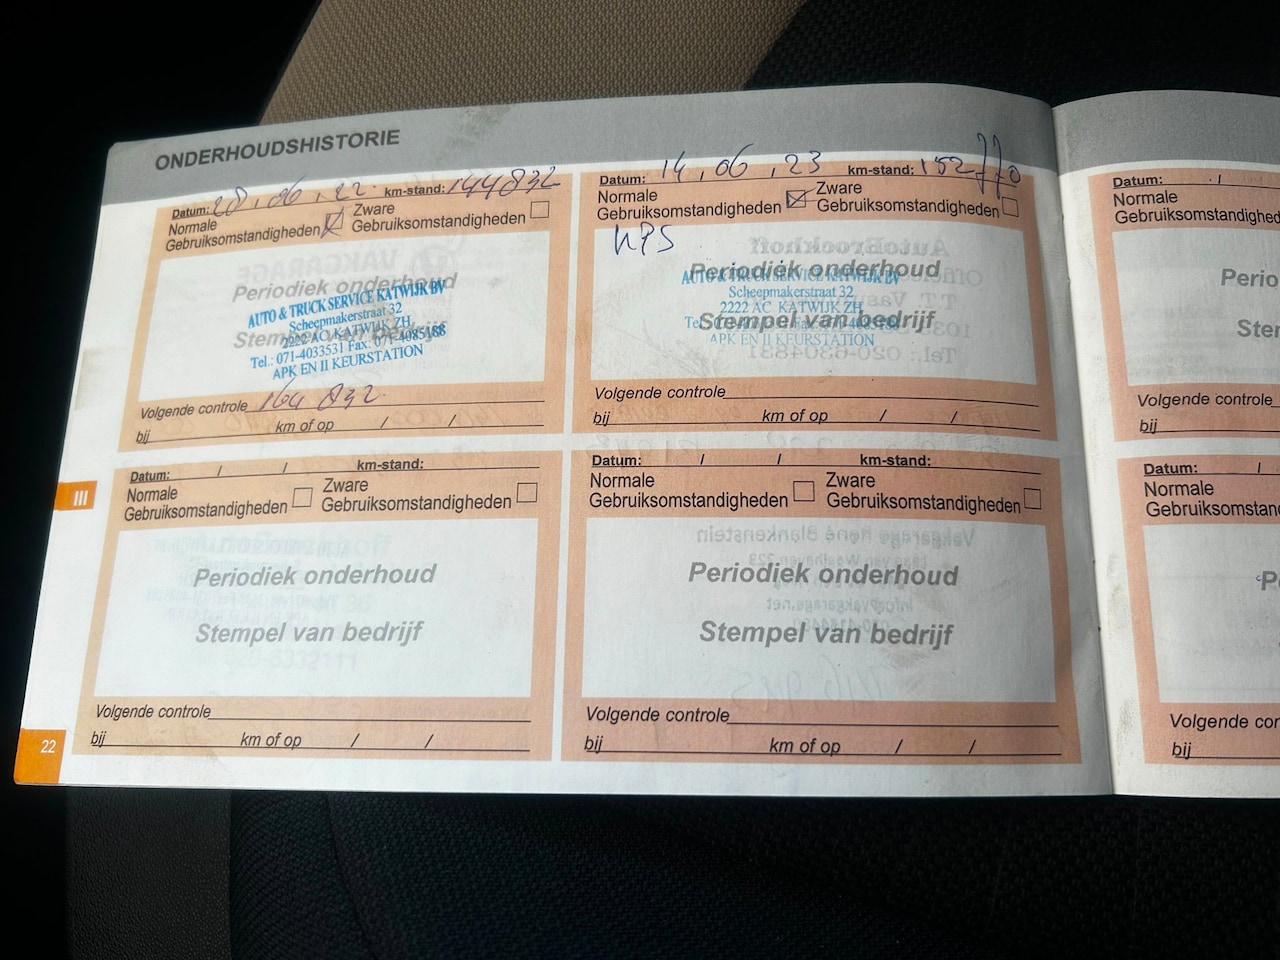 ONDERHOUDSHISTORIE
Datum: 28.06.22 km-stand: 144832
Normale
Gebruiksomstandigheden
Zware
Gebruiksomstandigheden
Periodiek onderhoud
Stempel van bedrijf
AUTO & TRUCK SERVICE KATWIJK BV
Scheepmakerstraat 32
2222 AC KATWIJK ZH
Tel.: 071-4033531 Fax: 071-4085188
APK EN II KEURSTATION
Volgende controle 164832
bij km of op / /
Datum: 14.06.23 km-stand: 152770
Normale
Gebruiksomstandigheden
Zware
Gebruiksomstandigheden
Periodiek onderhoud
Stempel van bedrijf
AUTO & TRUCK SERVICE KATWIJK BV
Scheepmakerstraat 32
2222 AC KATWIJK ZH
APK EN II KEURSTATION
Volgende controle
bij km of op / /
Datum: /
Normale
Gebruiksomsta
Perio
Ste
Volgende controle
bij
III
Datum: / / km-stand:
Normale
Gebruiksomstandigheden
Zware
Gebruiksomstandigheden
Periodiek onderhoud
Stempel van bedrijf
Volgende controle
bij km of op / /
Datum: / / km-stand:
Normale
Gebruiksomstandigheden
Zware
Gebruiksomstandigheden
Periodiek onderhoud
Stempel van bedrijf
Volgende controle
bij km of op / /
Datum: /
Normale
Gebruiksomstan
P
Volgende cor
bij
22